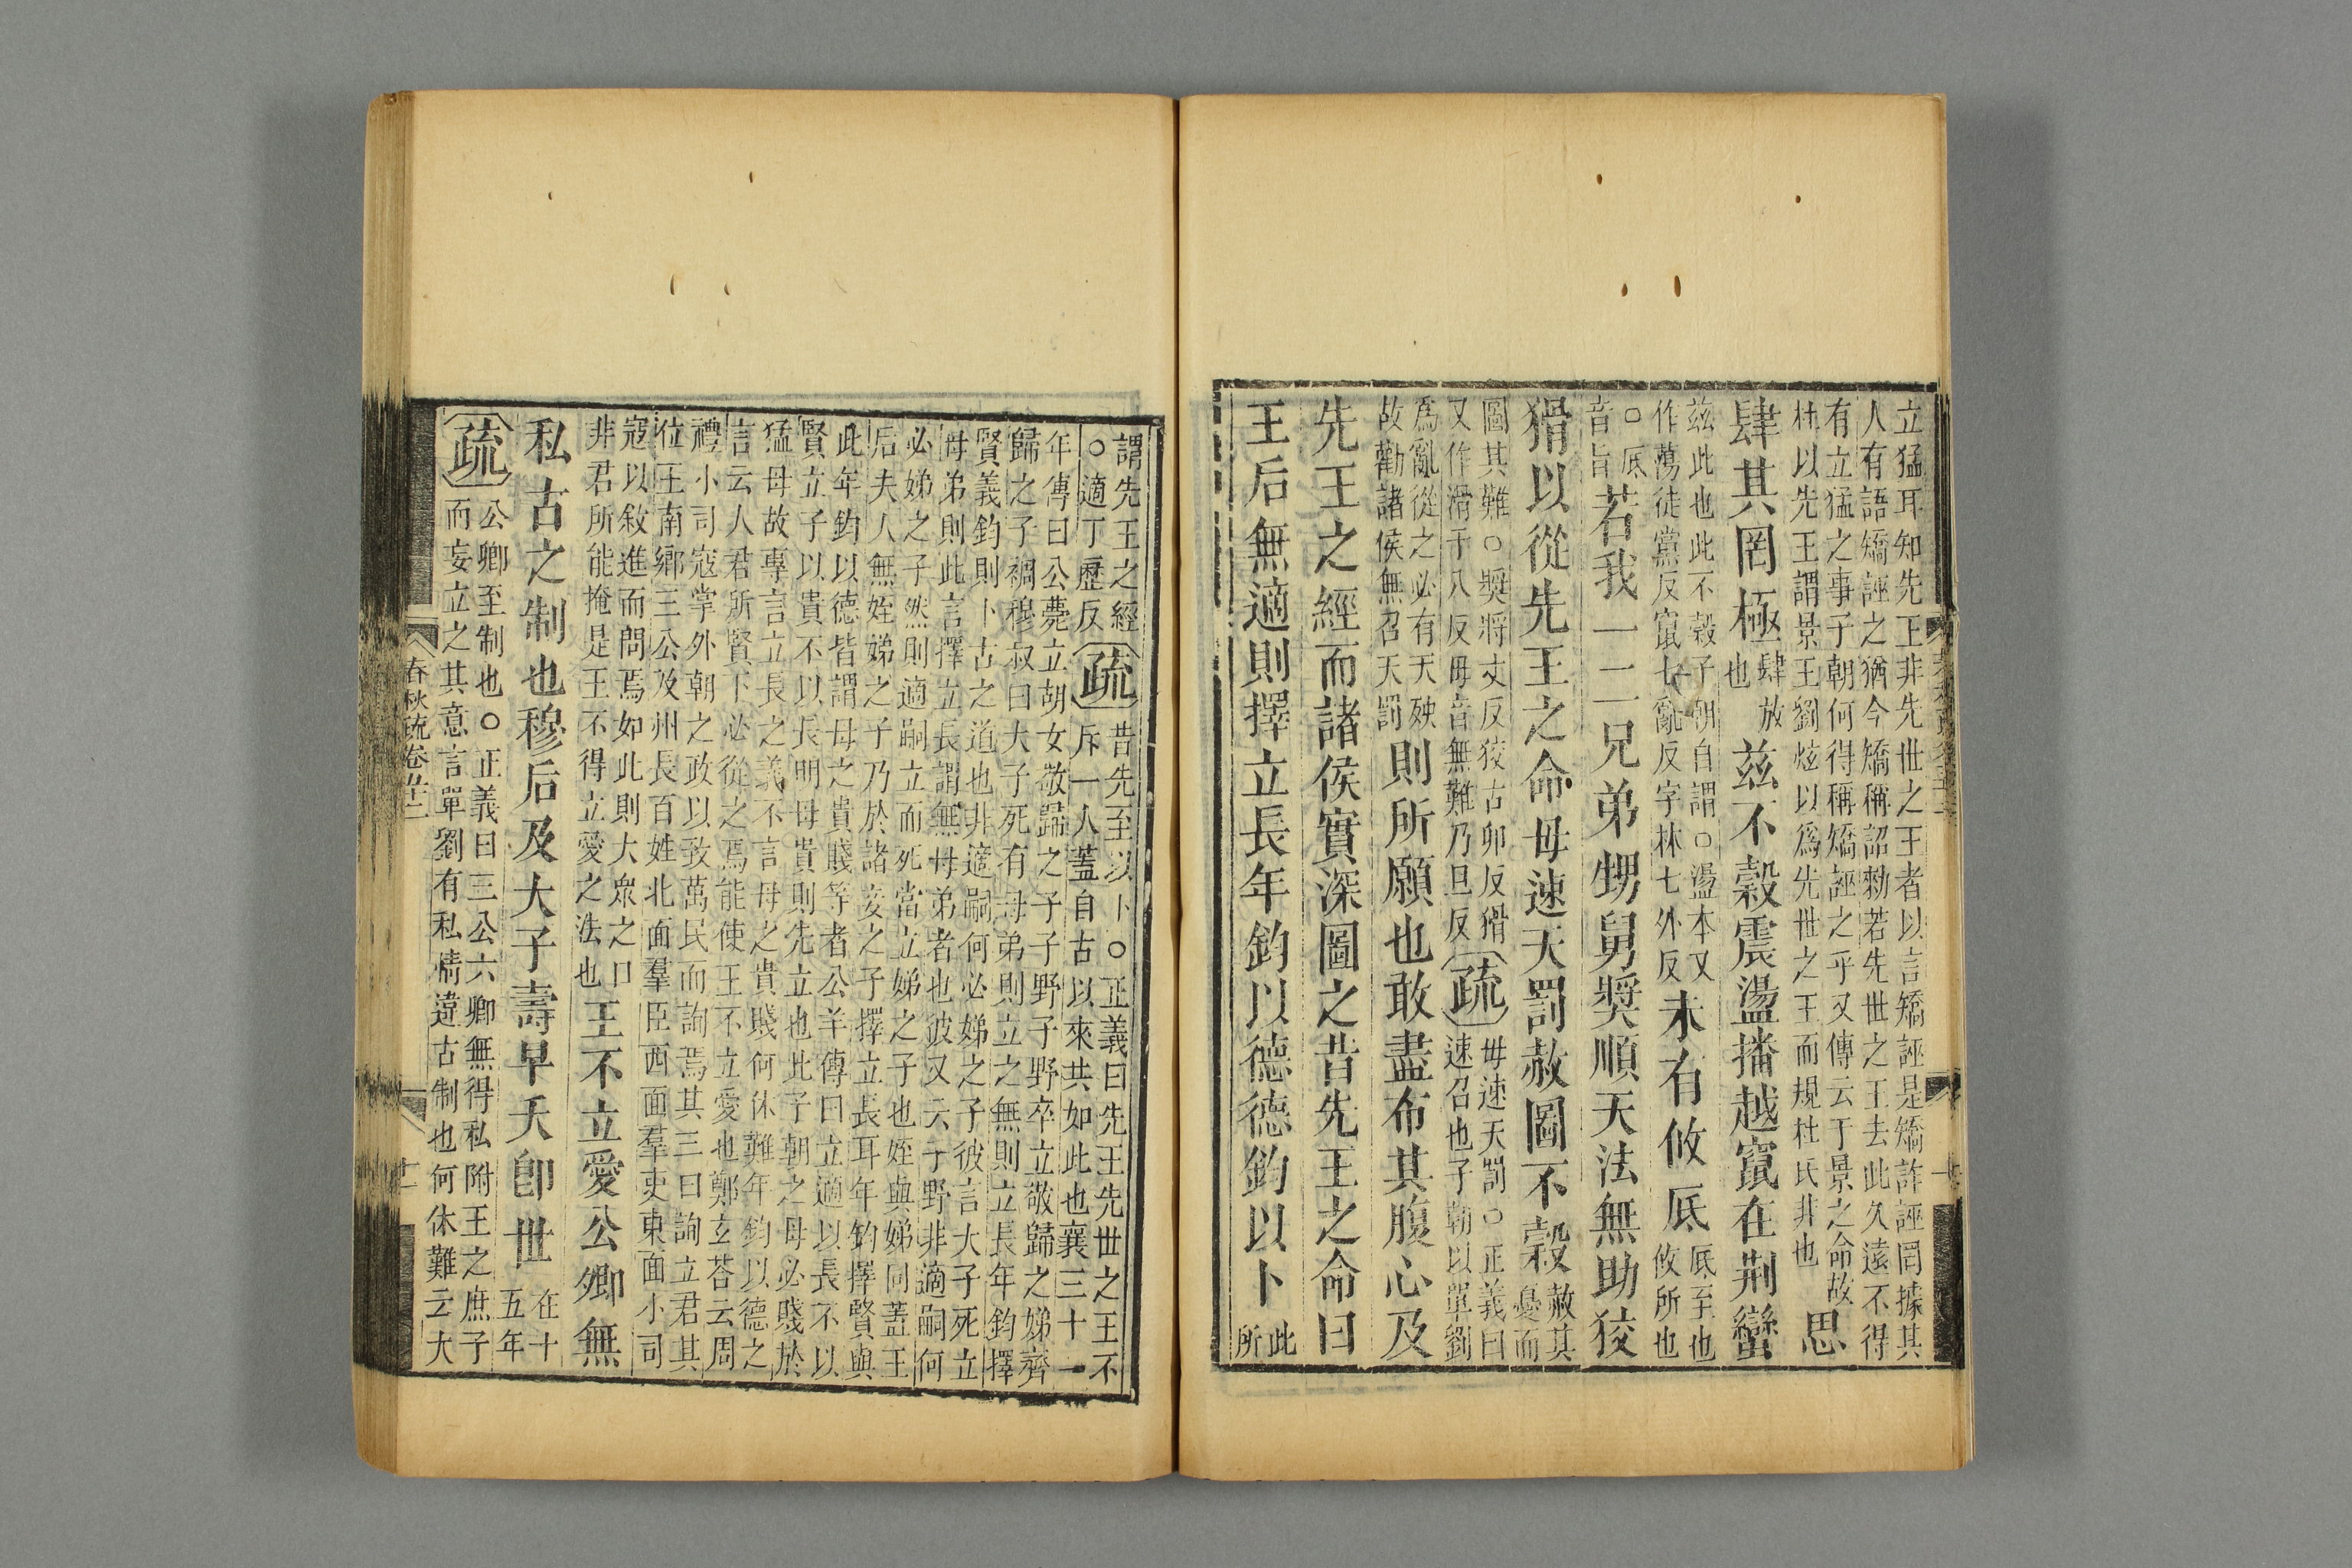 立猛耳知先王非先世之王者以言矯誣是矯詐誣罔據其
人有語矯誣之猶今矯稱詔勑若先世之王去此久遠不得
有立猛之事子朝何得稱矯誣之乎又傳云于景之命故
杜以先王謂景王劉炫以爲先世之王而規杜氏非也
思
肆其罔極
肆放
也
茲不穀震盪播越竄在荆蠻
茲此也此不穀子朝自謂○盪本又
作蕩徒黨反竄七亂反字林七外反
未有攸厎
厎至也
攸所也
○厎
音旨
若我一二兄弟甥舅奬順天法無助狡
猾以從先王之命毋速天罰赦圖不穀
赦其
憂而
圖其難○奬將丈反狡古卯反猾
又作滑于八反毋音無難乃旦反
疏
毋速天罰○正義曰
速召也子朝以單劉
爲亂從之必有天殃
故勸諸侯無召天罰
則所願也敢盡布其腹心及
先王之經而諸侯實深圖之昔先王之命曰
王后無適則擇立長年鈞以德德鈞以卜
此
所
謂先王之經
○適丁歷反
疏
昔先至以卜○正義曰先王先世之王不
斥一人蓋自古以來共如此也襄三十一
年傳曰公薨立胡女敬歸之子子野子野卒立敬歸之娣齊
歸之子裯穆叔曰大子死有母弟則立之無則立長年鈞擇
賢義鈞則卜古之道也非適嗣何必娣之子彼言大子死立
母弟則此言擇立長謂無母弟者也彼又云子野非適嗣何
必娣之子然則適嗣立而死當立娣之子也姪與娣同蓋王
后夫人無姪娣之子乃於諸妾之子擇立長耳年鈞擇賢與
此年鈞以德皆謂母之貴賤等者公羊傳曰立適以長不以
賢立子以貴不以長明母貴則先立也此子朝之母必賤於
猛母故專言立長之義不言母之貴賤何休難年鈞以德之
言云人君所賢下必從之焉能使王不立愛也鄭玄荅云周
禮小司寇掌外朝之政以致萬民而詢焉其三曰詢立君其
位王南鄉三公及州長百姓北面羣臣西面羣吏東面小司
寇以敘進而問焉如此則大衆之口
非君所能掩是王不得立愛之法也
王不立愛公卿無
私古之制也穆后及大子壽早夭卽世
在十
五年
疏
公卿至制也○正義曰三公六卿無得私附王之庶子
而妄立之其意言單劉有私情違古制也何休難云大
春秋疏卷五十二